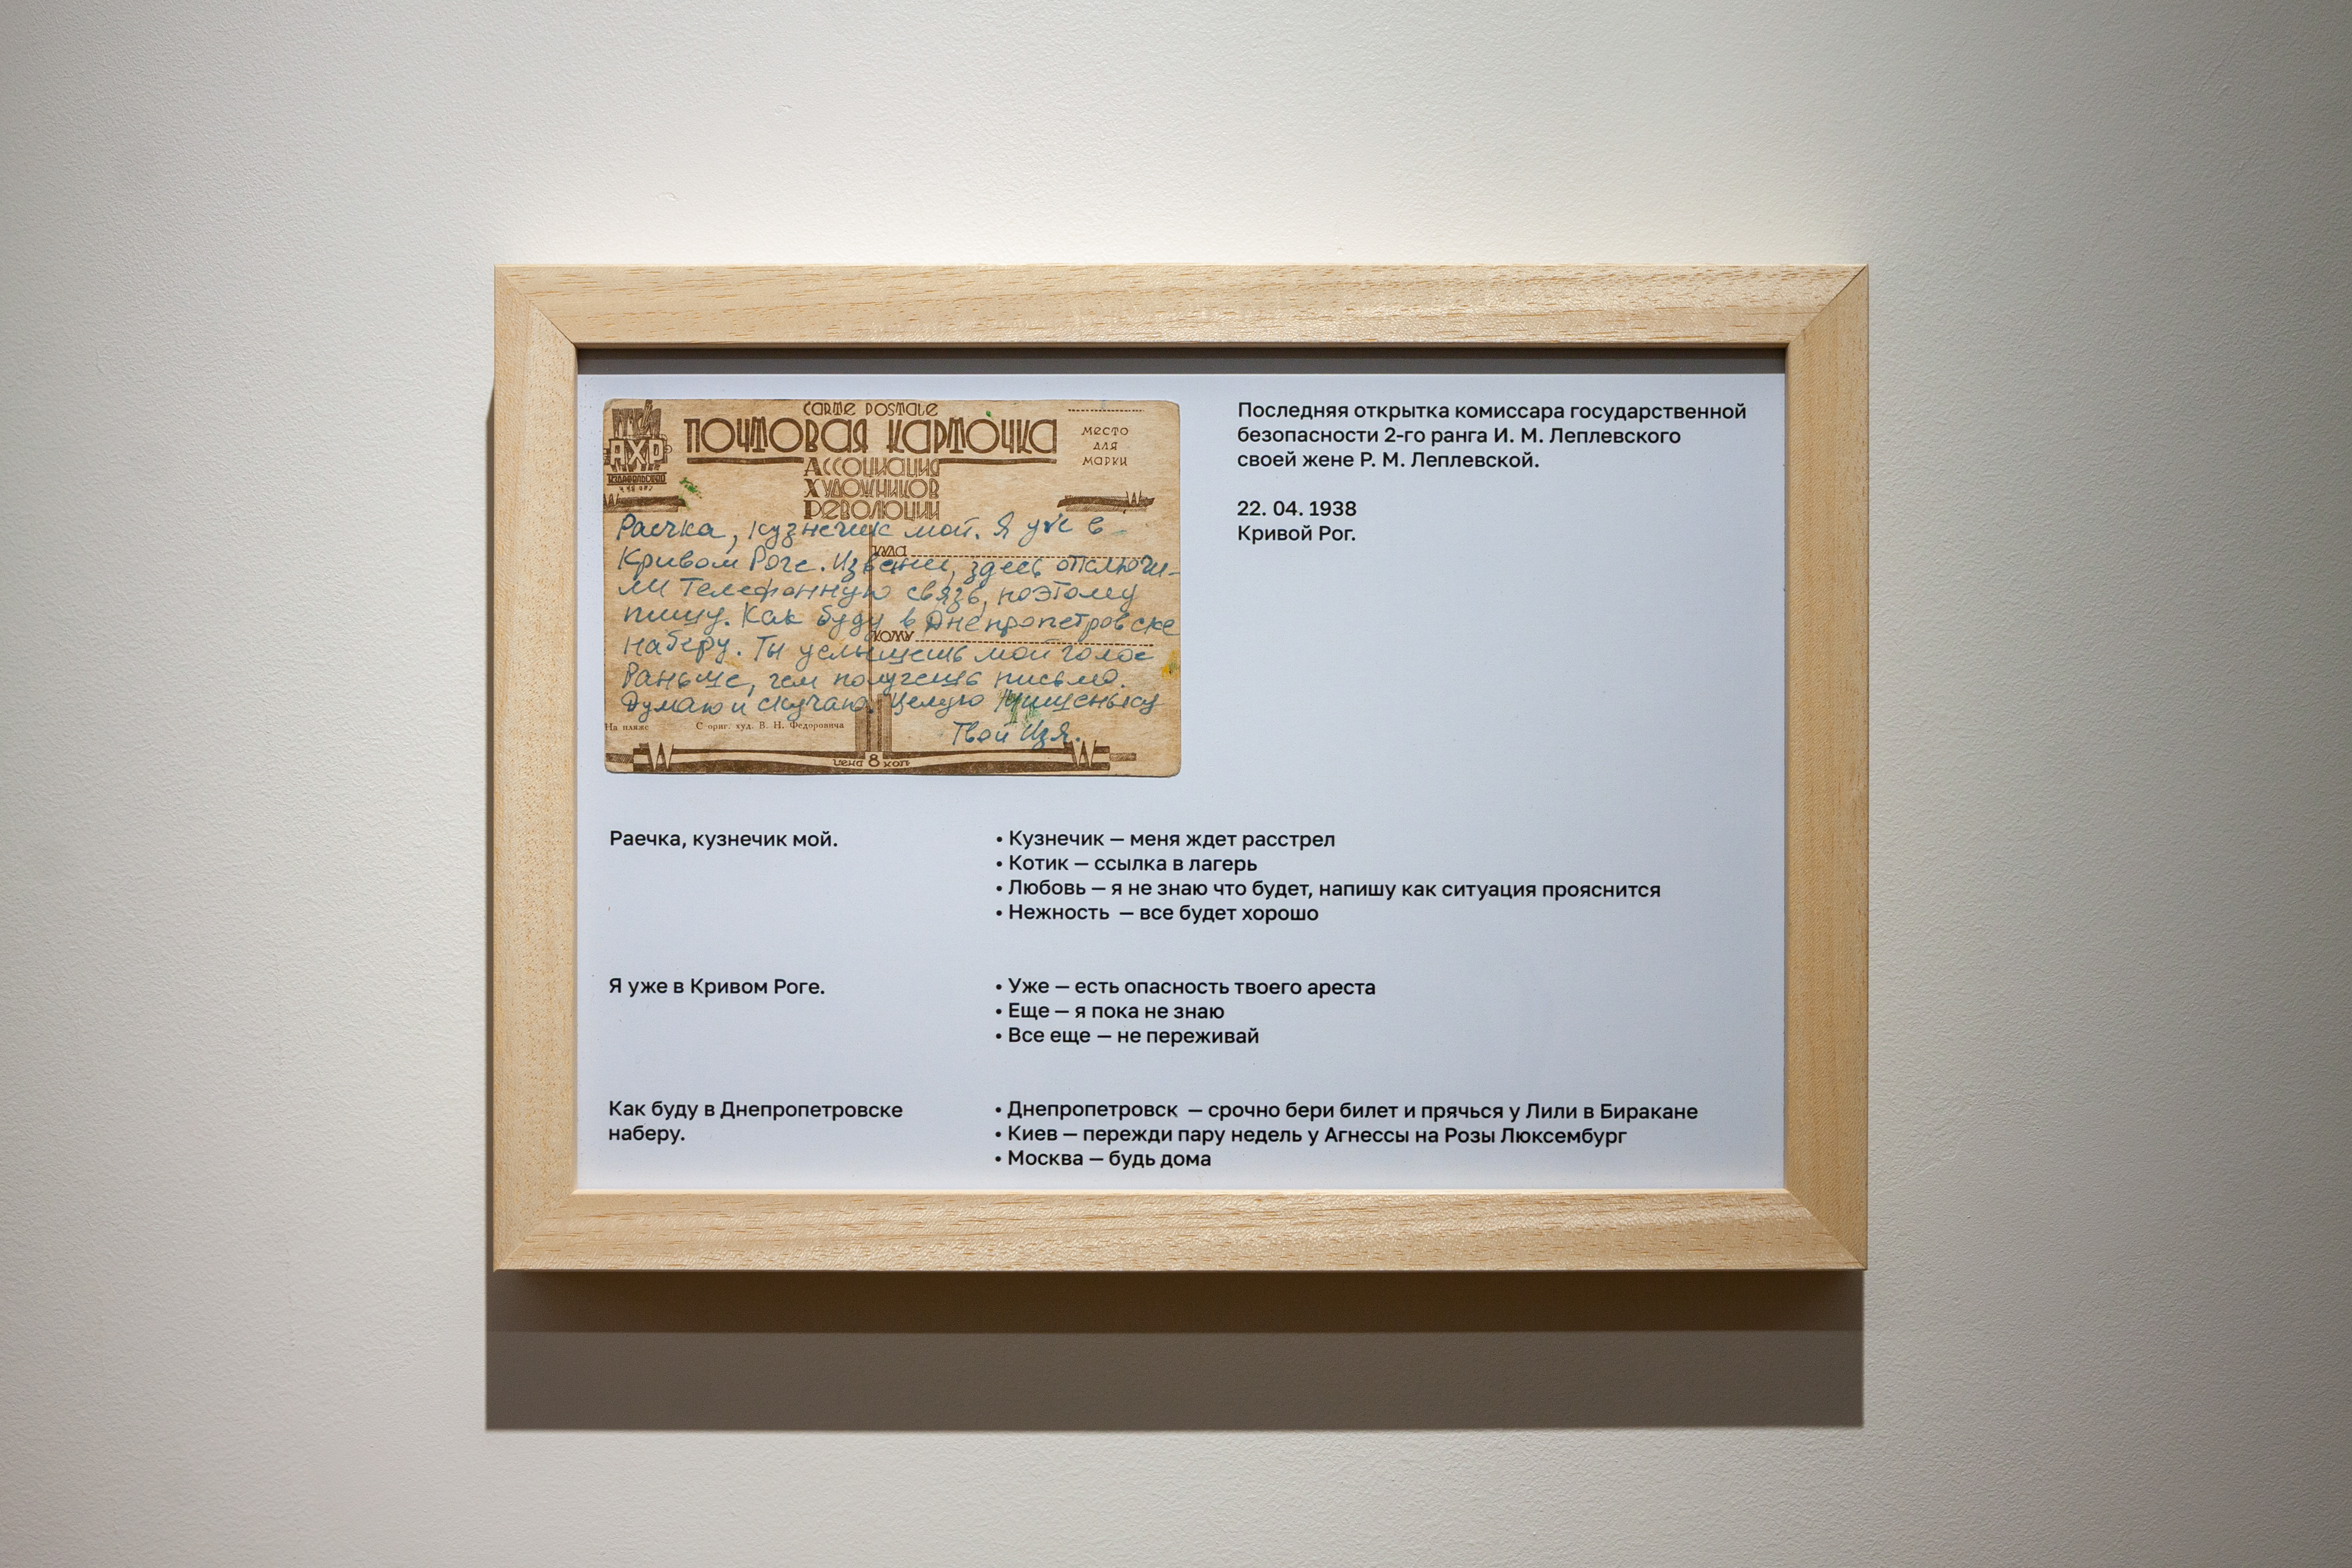 CARTE POSTALE
ПОЧТОВАЯ КАРТОЧКА
АССОЦИАЦИЯ
ХУДОЖНИКОВ
РЕВОЛЮЦИИ
АХР
МЕСТО
ДЛЯ
МАРКИ
КУДА
КОМУ
Раечка, кузнечик мой. Я уже в
Кривом Роге. Извени, здесь отключи-
ли телефонную связь, поэтому
пишу. Как буду в Днепропетровске
наберу. Ты услышешь мой голос
Раньше, чем получешь письмо.
Думаю и скучаю. Целую
Твой Изя.
На пляже
С ориг. худ. В. Н. Федоровича
ЦЕНА 8 КОП
Последняя открытка комиссара государственной
безопасности 2-го ранга И. М. Леплевского
своей жене Р. М. Леплевской.
22. 04. 1938
Кривой Рог.
Раечка, кузнечик мой.
• Кузнечик — меня ждет расстрел
• Котик — ссылка в лагерь
• Любовь — я не знаю что будет, напишу как ситуация прояснится
• Нежность — все будет хорошо
Я уже в Кривом Роге.
• Уже — есть опасность твоего ареста
• Еще — я пока не знаю
• Все еще — не переживай
Как буду в Днепропетровске
наберу.
• Днепропетровск — срочно бери билет и прячься у Лили в Биракане
• Киев — пережди пару недель у Агнессы на Розы Люксембург
• Москва — будь дома